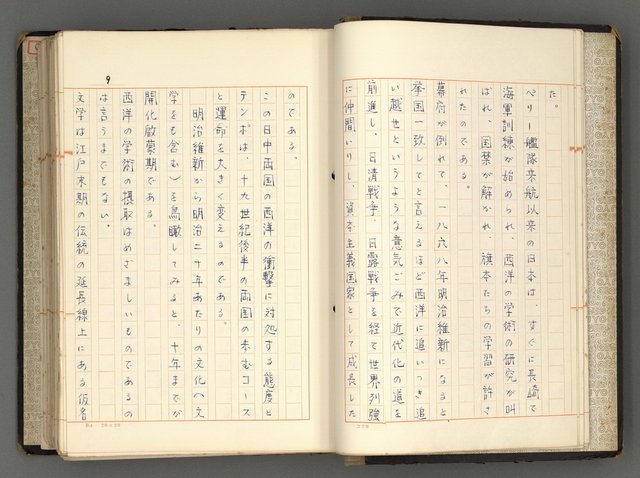 た。
ペリー艦隊来航以来の日本は、すぐに長崎で
海軍訓練が始められ、西洋の学術の研究が叫
ばれ、国禁が解かれ、旗本たちの学習が許さ
れたのである。
幕府が倒れて、一八六八年明治維新になると、
挙国一致してと言えるほど西洋に追いつき追
い越せというような意気ごみで近代化の道を
前進し、日清戦争、日露戦争を経て世界列強
に仲間いりし、資本主義国家として成長した
のである。
この日中両国の西洋の衝撃に対処する態度と
テンポは、十九世紀後半の両国の歩むコース
と運命を大きく変えるのである。
明治維新から明治二十年あたりの文化(文
学をも含む)を鳥瞰してみると、十年までが
開化啟蒙期である。
西洋の学術の摂取はめざましいものであるの
は言うまでもない。
文学は江戸末期の伝統の延長線上にある仮名
9
20×20